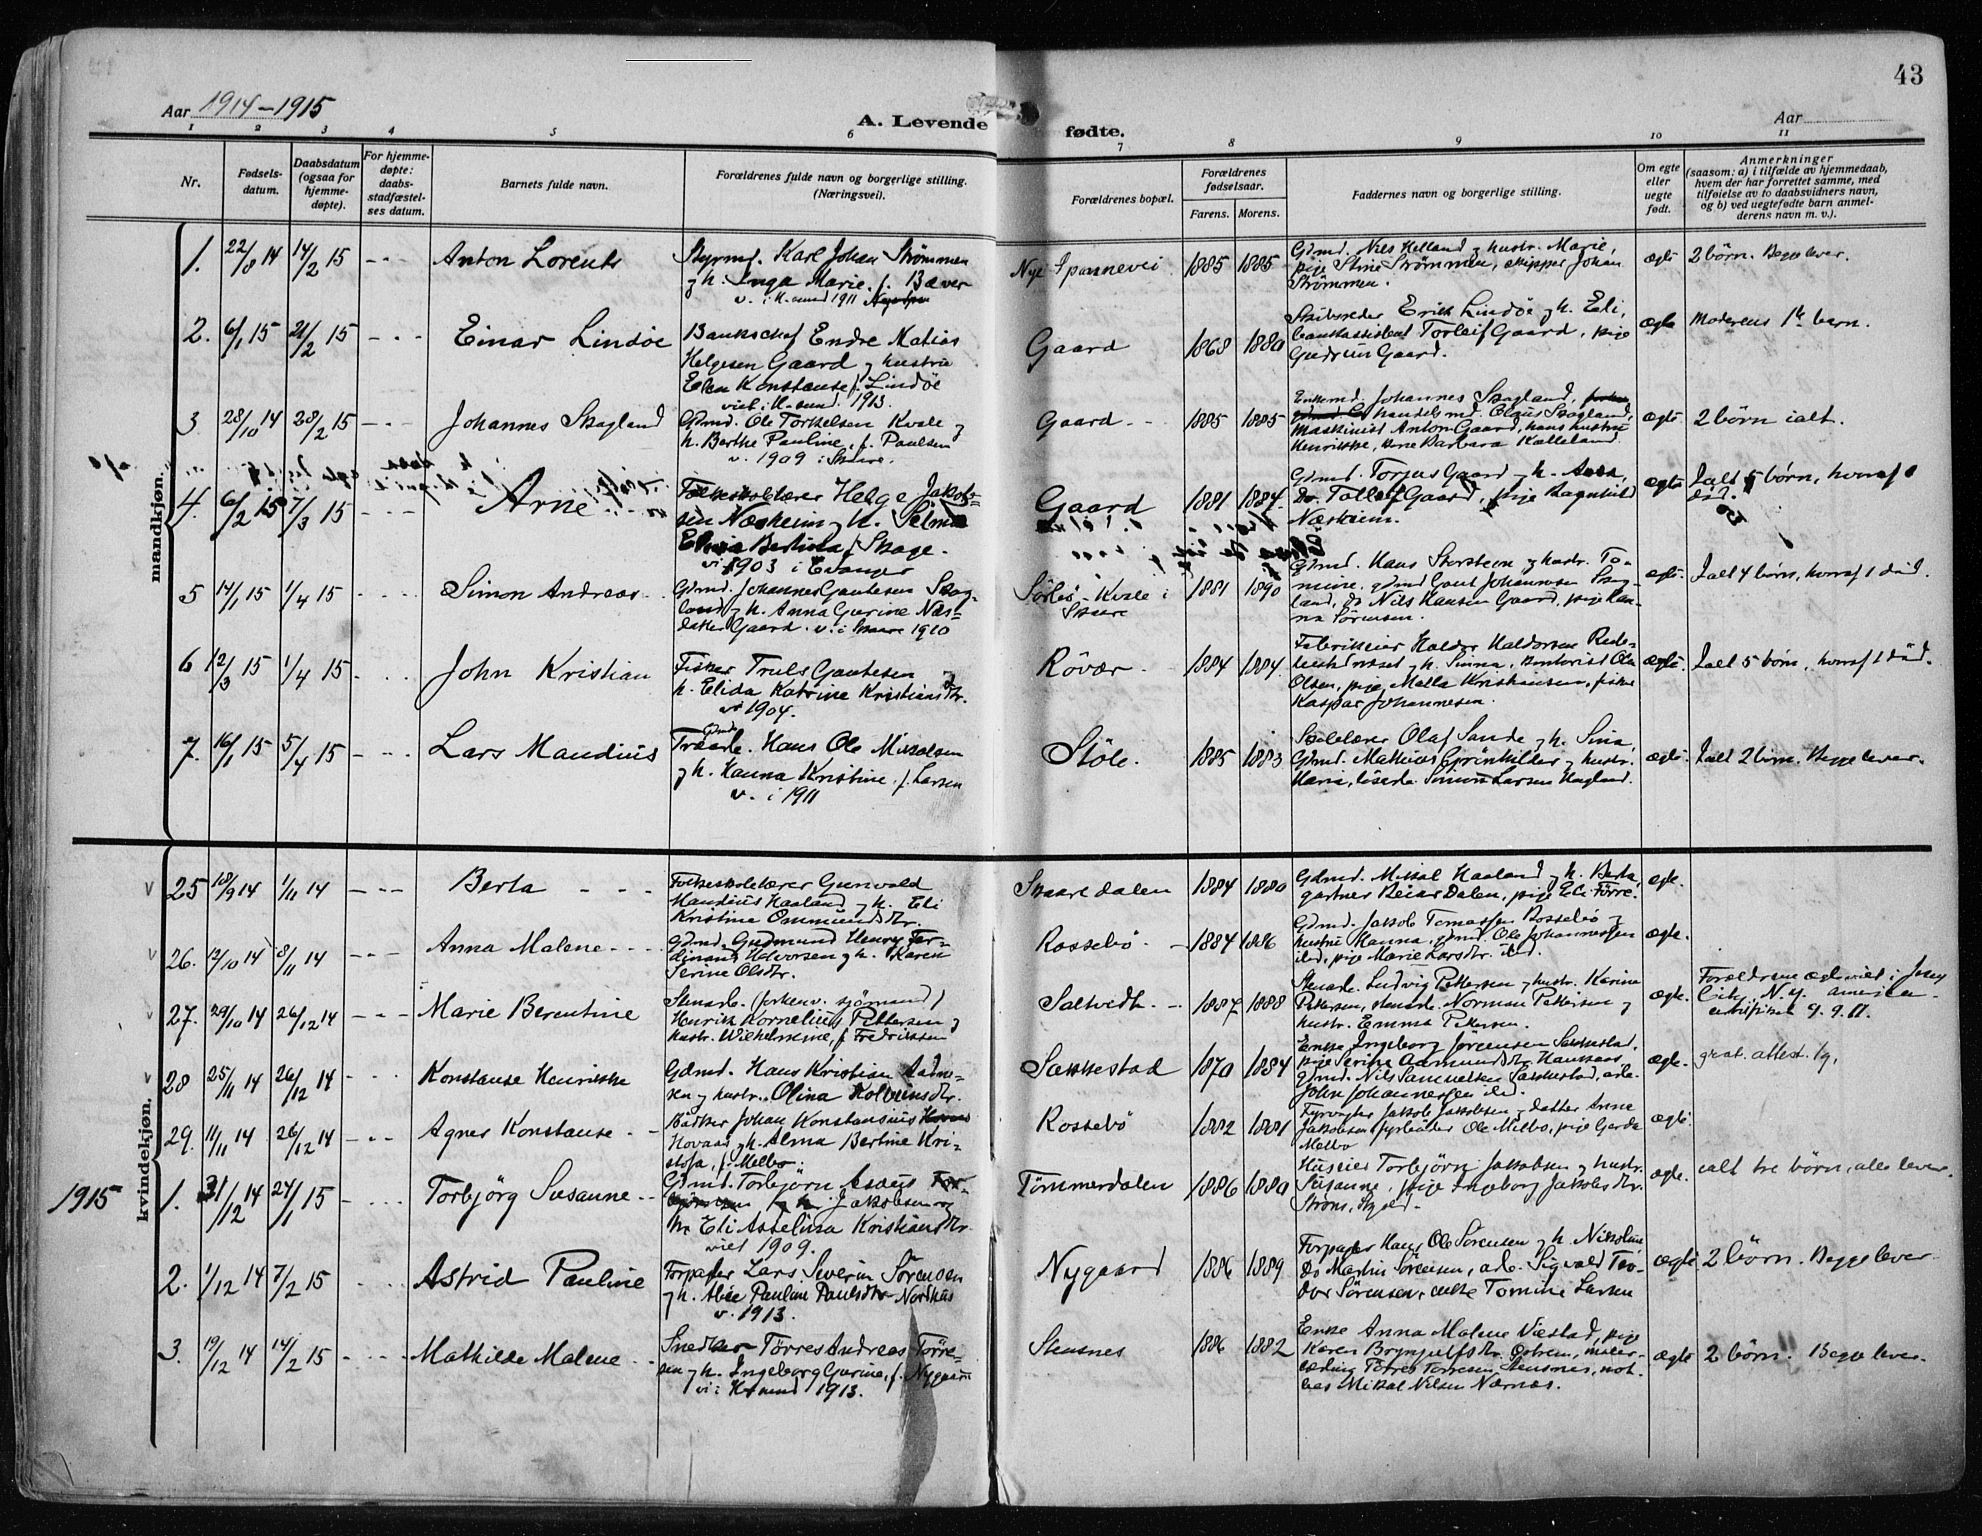 43
Aar 1914-1915
A. Levende fødte.
Aar
1 2 3 4 5 6 7 8 9 10 11
Nr.
Fødsels-
datum.
Daabsdatum
(ogsaa for
hjemme-
døpte).
For hjemme-
døpte:
daabs-
stadfæstel-
ses datum.
Barnets fulde navn.
Forældrenes fulde navn og borgerlige stilling.
(Næringsvei).
Forældrenes bopæl.
Forældrenes
fødselsaar.
Farens. Morens.
Faddernes navn og borgerlige stilling.
Om egte
eller
uegte
født.
Anmerkninger
(saasom: a) i tilfælde av hjemmedaab,
hvem der har forrettet samme, med
tilføielse av to daabsvidners navn,
og b) ved uegtefødte barn anmel-
derens navn m. v.).
mandkjøn.
1. 22/8 14 14/2 15 - - - Anton Lorents
Styrmd. Karl Johan Strømmen
og h. Inga Marie, f. Bæver
1885 1885
Gdmd. Nils Helland og hustr. Marie,
pige Stine Strømmen, skipper Johan
Strømmen.
ægte 2 börn. Begge lever.
2. 6/1 15 21/2 15 - - - Einar Lindöe
Bankschef Endre Matias
Helgesen Gaard og hustru
Elen Konstanse f. Lindöe
viet i H-sund. 1913.
Gaard 1868 1880
Skibsreder Erik Lindöe og h. Eli,
Torleif Gaard, pige
Gudrun Gaard.
ægte Moderens 1ste barn.
3 28/10 14 28/2 15 - - - Johannes Skogland
Gdmd. Ole Torkelsen Kvale og
h. Berthe Pauline, f. Paulsen
v. 1909 i Skaare.
Gaard - - 1885 1885
Enkemd. Johannes Skogland,
handelsmd. Olaus Skogland,
Maskinist Anton Gaard, hans hustru
Henrikke, Barbara Kalleland
ægte 2 börn ialt.
4. 6/2 15 7/3 15 - - - Arne
Folkeskolelærer Helge Jakob-
sen Næsheim og h. Selma
Bertina f. Skage.
1903 i Evanger
Gaard 1881 1884.
Gdmd. Torjus Gaard og h.
do. Tollef Gaard, pige Ragnhild
Næsheim.
ægte Ialt 5 börn, hvoraf 1
död.
5 14/1 15 1/4 15 - - - Simon Andreas
Gdmd. Johannes Gautesen Skog-
land og h. Anna Gurine Næs-
Gaard. v. i Skaare 1910
Kvale i
Skaare
1881 1890
Gdmd. Hans Storsteen og hustr. To-
mine, gdmd Gaut Johannesen Skog-
land, do Nils Hansen Gaard, pige Han-
na Sörensen.
ægte Ialt 4 börn, hvoraf 1 död.
6 12/3 15 1/4 15 - - - John Kristian
Fisker Truls Gautesen
h. Elida Katrine Kristiansdtr.
v. 1904.
Rövær - 1884 1884.
Fabrikeier Haldor Haldorsen
og h. Sinna, kontorist Ole
Olsen, pige Malla Kristiansen, fisker
Kaspar Johannesen.
ægte. Ialt 5 börn, hvoraf 1 död.
7. 16/1 15 5/4 15 - - - Lars Maudius
Hans Ole Mikalsen
og h. Hanna Kristine, f. Larsen
v. i 1911
Stöle. 1885 1883
Skolelærer Olaf Sande og h. Sina,
Gdmd. Mathias Grönhilder og hustr.
Maria, Simon Larsen Hagland.
ægte. Ialt 2 börn. Begge lever.
kvindekjøn.
25 18/9 14 1/11 14 - - - Berta - - -
Folkeskolelærer Gunvald
Maudius Haaland og h. Eli
Kristina Ommundsdtr.
Skaaredalen 1884 1880
Gdmd. Mikal Haaland og h. Berta,
gartner Reiar Dalen, pige Eli Förre.
ægte.
26. 12/10 14 8/11 14 - - - Anna Malene - - -
Gdmd. Gudmund Henry Fer-
dinand Halvorsen og h. Karen
Serine Olsdtr.
Rossebö - - 1884 1886
Gdmd. Jakob Tomassen Rossebö og
hustru Hanna, gdmd. Ole Johannessen
ibid, pige Marie Larsdtr. ibid.
ægte.
27. 29/10 14 26/12 14 - - - Marie Berentine
Stenarb. (forhenv. sjömand)
Henrik Kornelius Pettersen og
hustr. Wilhelmine, f. Fredriksen
Saltvedt - - 1887 1888
Stenarb. Ludvig Pettersen og hustr. Karine
Pettersen, stenarb. Norman Pettersen og
hustr. Emma Pettersen.
ægte.
Forældrene ægteviet i Jersey
City. N.Y. Amerika.
certifikat 9. 9. 11.
28 25/11 14 26/12 14 - - - Konstanse Henrikke
Gdmd. Hans Kristian
og hustr. Olina Kolbeinsdtr.
Sakkestad 1870 1884
Enke Ingeborg Jörgensen Sakkestad,
pige Serine Aamundsdtr. Haukaas
gdmd. Nils Samuelsen Sakkestad, arb.
John Johannessen ibid.
ægte. grat. attest.
29. 11/11 14 26/12 14 - - - Agnes Konstanse - -
Bödker Johan Konstansius
Hovaas og h. Alma Bertine Kri-
stofa, f. Melbo.
Rossebö 1882 1881
Fyrvogter Jakob Jakobsen og datter Anne
Jakobsen, fyrböder Ole Melbo, pige Garda
Melbo
ægte
1915
1. 31/12 14 24/1 15 - - - Torbjörg Susanne - -
Gdmd. Torbjörn Asaus
Jakobsen og
h. Eli Asseline Kristiansdtr.
viet 1909.
Tömmerdalen 1886 1880
Huseier Torbjörn Jakobsen og hustr.
Susanne, pige Ingeborg Jakobsdtr.
ægte. ialt tre börn, alle lever.
2. 1/12 14 7/2 15 - - - Astrid Pauline
Forpagter Lars Severin Sörensen
og h. Alise Pauline Paulsdtr Nordhus
v. 1913.
Nygaard 1886 1889
Forpagter Hans Ole Sörensen og h. Nikoline
do Martin Sörensen, arb. Sigvald Teo-
dor Sörensen, enke Tomine Larsen
ægte 2 börn. Begge lever.
3. 19/12 14 14/2 15 - - - Mathilde Malene - -
Snedker Törres Andreas Törre-
sen og h. Ingeborg Gurine, f. Nygaard
v. i H-sund 1913.
Stensnes 1886 1882
Enke Anna Malene Næstad, pige
Karen Brynjulfsdtr. Östrem, maler-
lærling Törres Torresen Stensnes, not-
bas Mikal Nilsen Nærnæs.
ægte 2 börn. Begge lever.